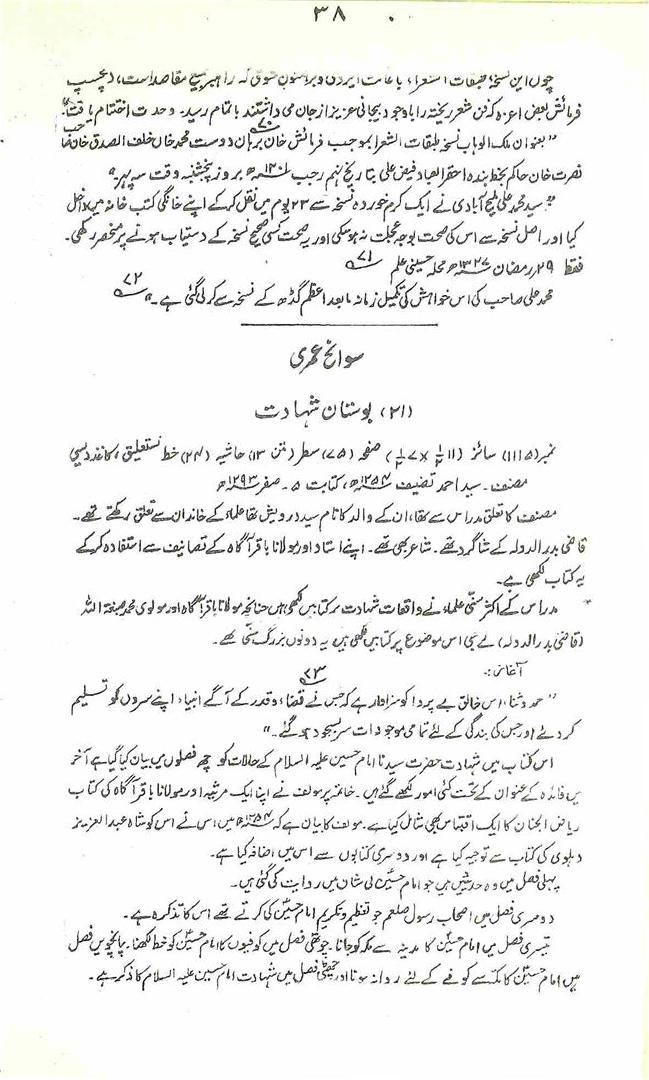 ۳۸
چوں این نسخہ طبقات الشعراء با عانت ایزدی و برہنمون شوقی کہ راہبر جمیع مقاصد است، دلچسپ
فرمائش بعض اعزہ کہ فن شعر ریختہ را باوجود بیجانی عزیز از جان می داشتند باتمام رسید۔ وحدت اختتام یافت"
۷۰
"بعنوان ملک الوہاب نسخہ طبقات الشعرا بموجب فرمائش خان برہان دوست محمد خان خلف الصدق خان صاحب
نصرت خان حاکم بخط بندہ احقر العباد فیض علی بتاریخ نہم رجب ۱۲۰۱ھ بروز پنجشنبہ وقت سہ پہر"
"سید محمد علی ملیح آبادی نے ایک کرم خوردہ نسخہ سے ۲۳ یوم میں نقل کر کے اپنے خانگی کتب خانہ میں داخل
کیا اور اصل نسخہ سے اس کی صحت بوجہ عجلت نہ ہوسکی اور یہ صحت کسی صحیح نسخہ کے دستیاب ہونے پر منحصر رکھی۔
فقط ۲۹ رمضان ۱۳۲۷ھ محلہ حسینی علم ۷۱
محمد علی صاحب کی اس خواہش کی تکمیل زمانہ مابعد اعظم گڈھ کے نسخہ سے کر لی گئی ہے۔" ۷۲
سوانح عمری
(۲۱) بوستان شہادت
نمبر (۱۱۱۵) سائز (۱۱ ۱/۲ × ۷ ۱/۲) صفحہ (۷۵) سطر (متن ۱۳) حاشیہ (۲۴) خط نستعلیق، کاغذ دیسی
مصنف۔ سید احمد تصنیف ۱۲۵۴ھ، کتابت ۵۔ صفر ۱۲۹۳ھ
مصنف کا تعلق مدراس سے تھا، ان کے والد کا نام سید درویش تھا علماء کے خاندان سے تعلق رکھتے تھے۔
قاضی بدر الدولہ کے شاگرد تھے۔ شاعر بھی تھے۔ اپنے استاد اور مولانا باقر آگاہ کے تصانیف سے استفادہ کر کے
یہ کتاب لکھی ہے۔
مدراس کے اکثر سنی علماء نے واقعات شہادت پر کتابیں لکھی ہیں چنانچہ مولانا باقر آگاہ اور مولوی محمد صبغۃ اللہ
(قاضی بدر الدولہ) نے بھی اس موضوع پر کتابیں لکھی ہیں یہ دونوں بزرگ سنی تھے۔
آغاز:۔
۷۳
"حمد و ثنا، اس خالق بے پروا کو سزاوار ہے کہ جس نے قضاء و قدر کے آگے انبیاء اپنے سروں کو تسلیم
کر دئے اور جس کی بندگی کے لئے تمامی موجودات سربسجود ہو گئے۔"
اس کتاب میں شہادت حضرت سیدنا امام حسین علیہ السلام کے حالات کو چھ فصلوں میں بیان کیا گیا ہے آخر
میں فائدہ کے عنوان کے تحت کئی امور لکھے گئے ہیں۔ خاتمہ پر مولف نے اپنا ایک مرثیہ اور مولانا باقر آگاہ کی کتاب
ریاض الجنان کا ایک اقتباس بھی شامل کیا ہے۔ مولف کا بیان ہے کہ ۱۲۵۴ھ میں، اس نے اس کو شاہ عبدالعزیز
دہلوی کی کتاب سے توجیہ کیا ہے اور دوسری کتابوں سے اس میں اضافہ کیا ہے۔
پہلی فصل میں وہ حدیثیں ہیں جو امام حسینؑ کی شان میں روایت کی گئی ہیں۔
دوسری فصل میں اصحاب رسول صلعم جو تعظیم و تکریم امام حسینؑ کی کرتے تھے اس کا تذکرہ ہے۔
تیسری فصل میں امام حسینؑ کا مدینہ سے مکہ کو جانا۔ چوتھی فصل میں کوفیوں کا امام حسینؑ کو خط لکھنا۔ پانچویں فصل
میں امام حسینؑ کا مکہ سے کوفے کے لئے روانہ ہونا اور چھٹی فصل میں شہادت امام حسین علیہ السلام کا ذکر ہے۔